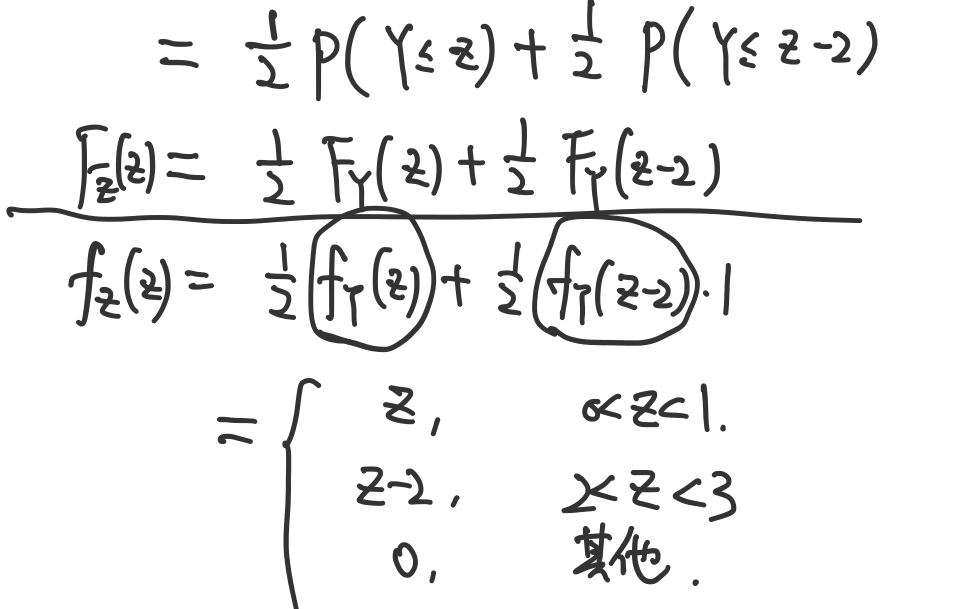 = 1/2 P(Y≤z) + 1/2 P(Y≤z-2)
F_Z(z) = 1/2 F_Y(z) + 1/2 F_Y(z-2)
f_Z(z) = 1/2 f_Y(z) + 1/2 f_Y(z-2)·1
= { z, 0<z<1.
z-2, 2<z<3
0, 其他.